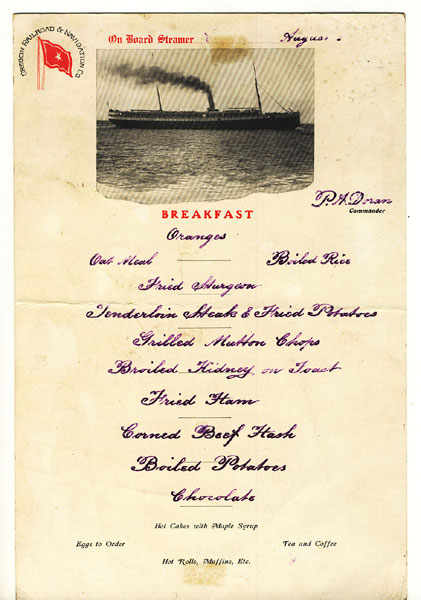 OREGON RAILROAD & NAVIGATION CO
On Board Steamer
Augus
P. A. Doran
Commander
BREAKFAST
Oranges
Oat Meal Boiled Rice
Fried Sturgeon
Tenderloin Steak & Fried Potatoes
Grilled Mutton Chops
Broiled Kidney on Toast
Fried Ham
Corned Beef Hash
Boiled Potatoes
Chocolate
Hot Cakes with Maple Syrup
Eggs to Order Tea and Coffee
Hot Rolls, Muffins, Etc.